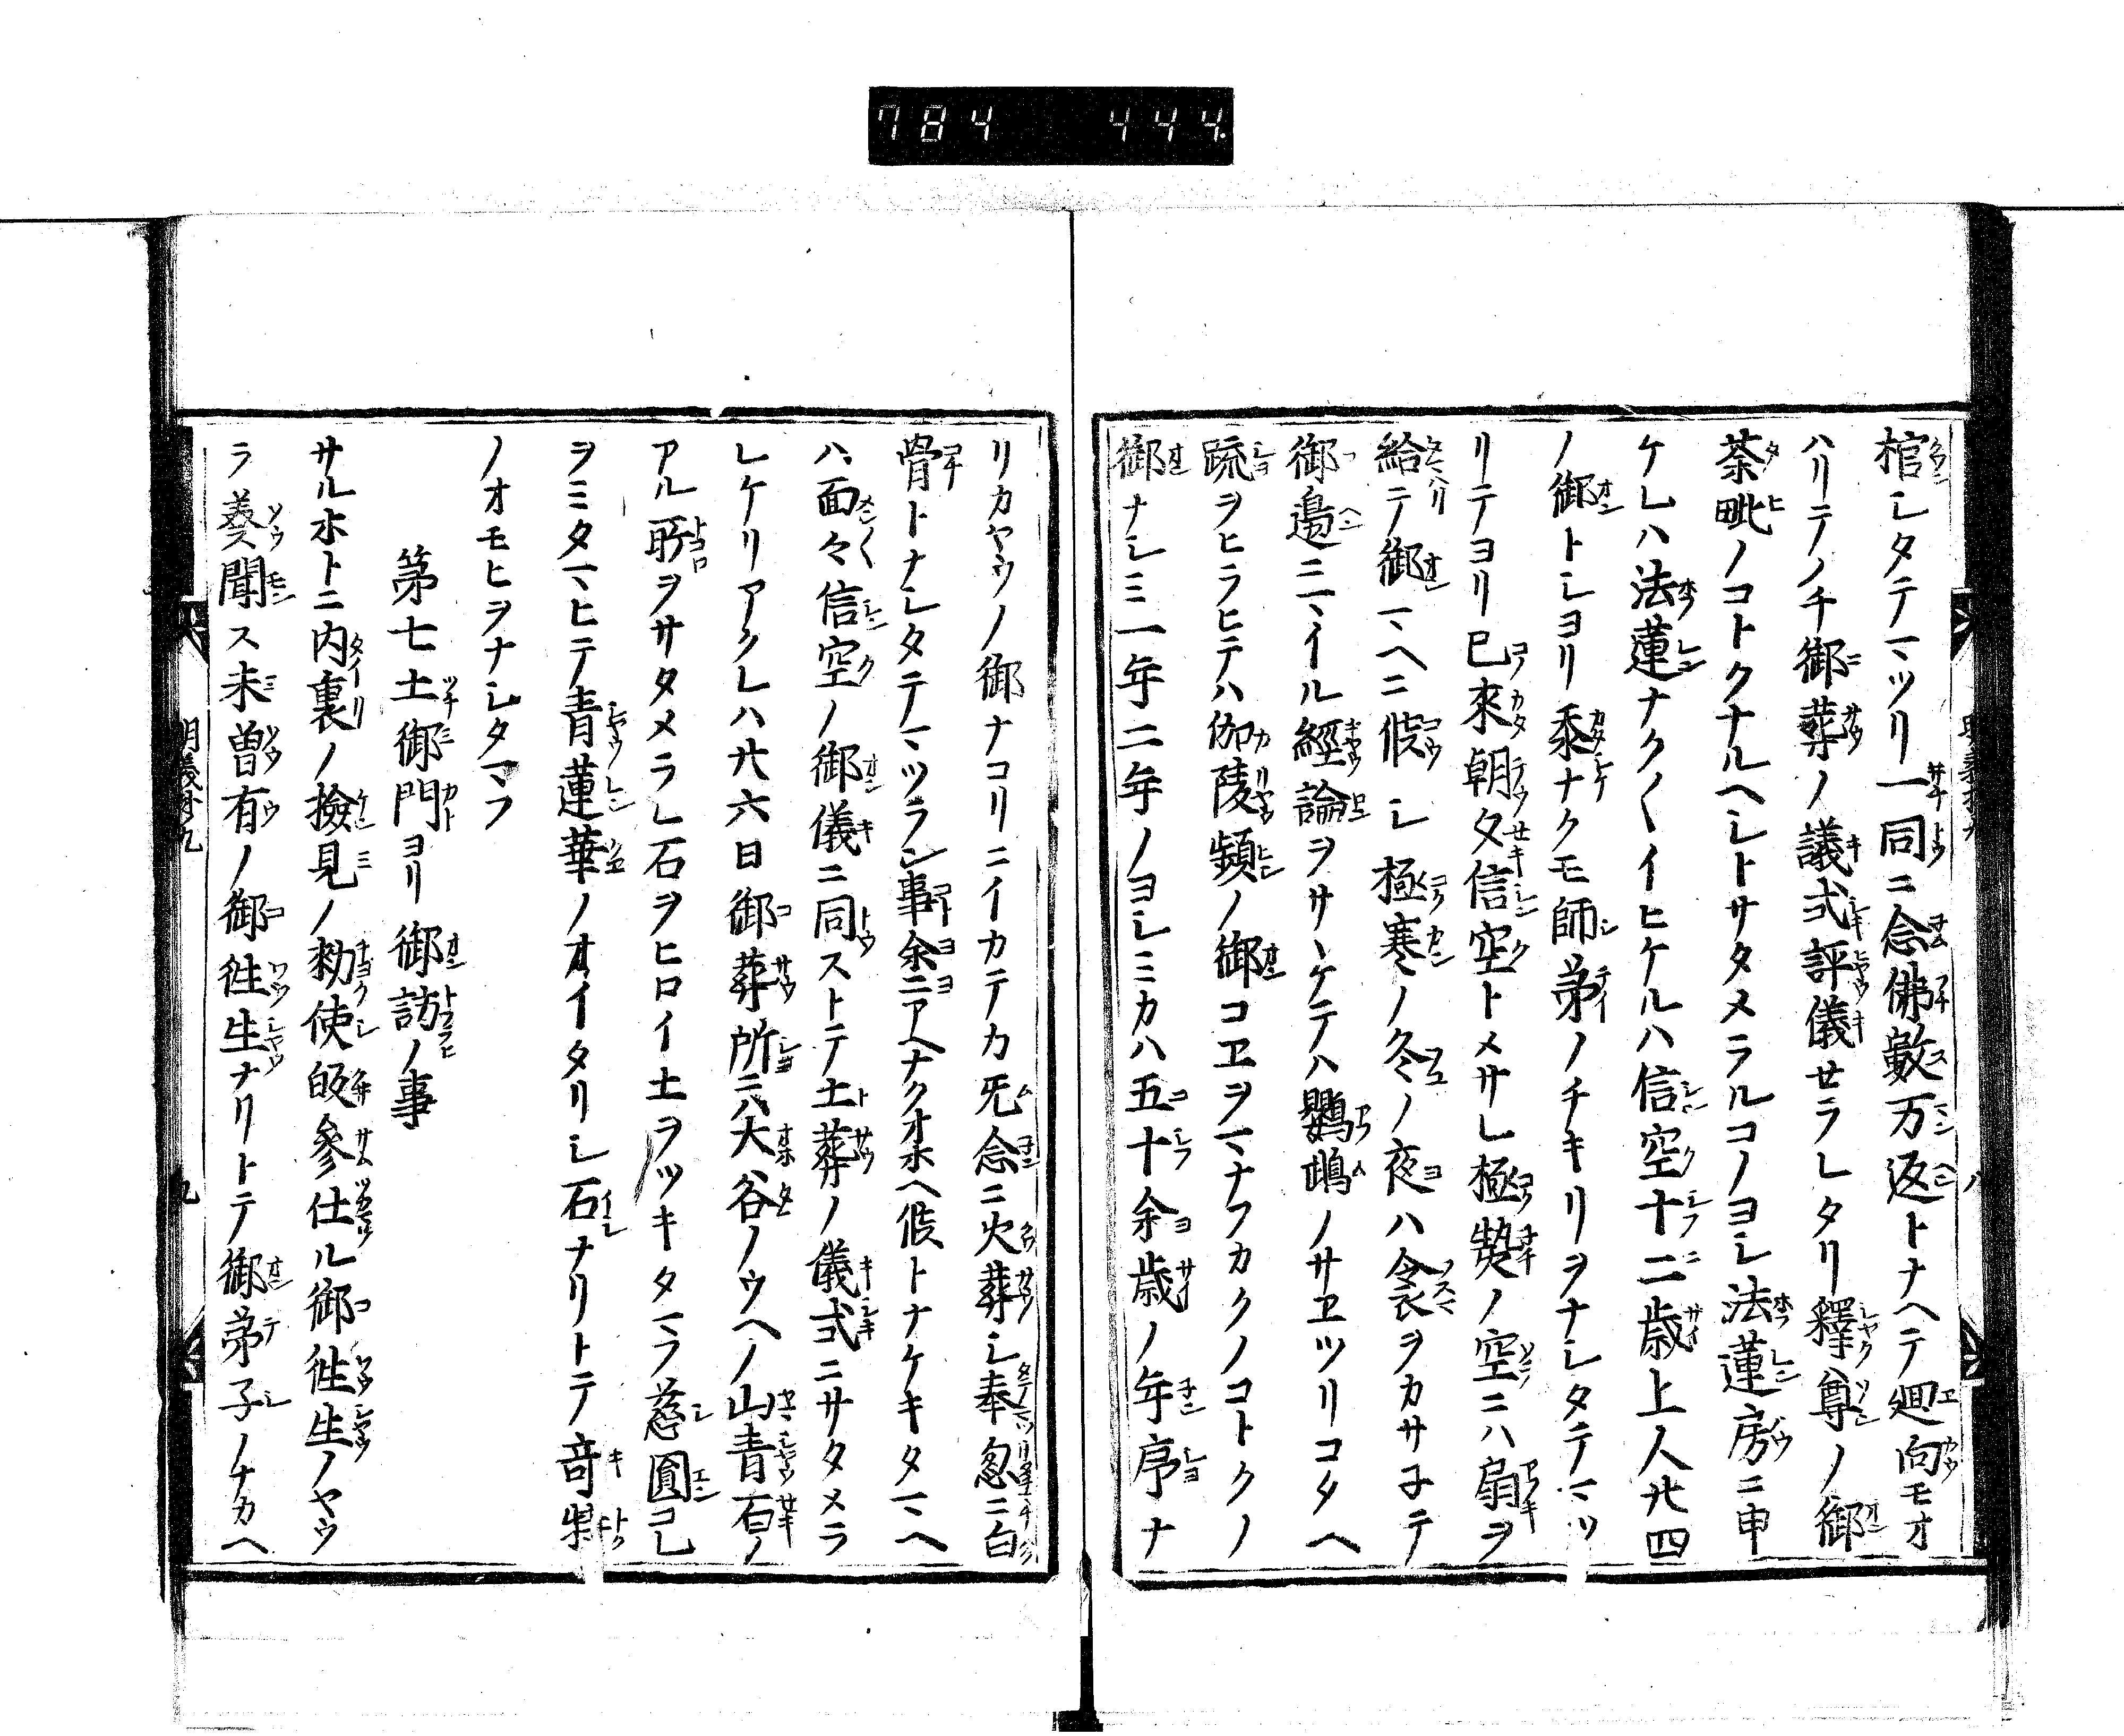 784 444
棺シタテマツリ一同ニ念佛數万返トナヘテ廻向モオ
ハリテノチ御葬ノ議式評儀せラレタリ釋尊ノ御
荼毗ノコトクナルヘシトサタメラルコノヨシ法蓮房ニ申
ケレハ法蓮ナクナクイヒケルハ信空十二歳上人廿四
ノ御トシヨリ忝ナクモ師弟ノチキリヲナシタテマツ
リテヨリ已來朝夕信空トメサレ極𤍠ノ空ニハ扇ヲ
給テ御マヘニ候シ極寒ノ冬ノ夜ハ衾ヲカサ子テ
御邊ニマイル經論ヲサヽケテハ鸚鵡ノサエツリコタヘ
䟽ヲヒラヒテハ伽陵頻ノ御コヱヲマナフカクノコトクノ
御ナシミ一年二年ノヨシミカハ五十余歳ノ年序ナ
リカヤウノ御ナコリニイカテカ无念ニ火葬シ奉忽ニ白
骨トナシタテマツラン事余ニアヘナクオホヘ候トナケキタマヘ
ハ面々信空ノ御儀ニ同ストテ土葬ノ儀式ニサタメラ
レケリアクレハ廿六日御葬所ニハ大谷ノウヘノ山青石ノ
アル所ヲサタメラレ石ヲヒロイ土ヲツキタマフ慈圓コレ
ヲミタマヒテ青蓮華ノオイタリシ石ナリトテ奇特
ノオモヒヲナシタマフ
第七土御門ヨリ御訪ノ事
サルホトニ内裏ノ撿見ノ勅使皈參仕ル御徃生ノヤウ
ラ奏聞ス未曽有ノ御徃生ナリトテ御弟子ノナカヘ
明義抄九
九
八